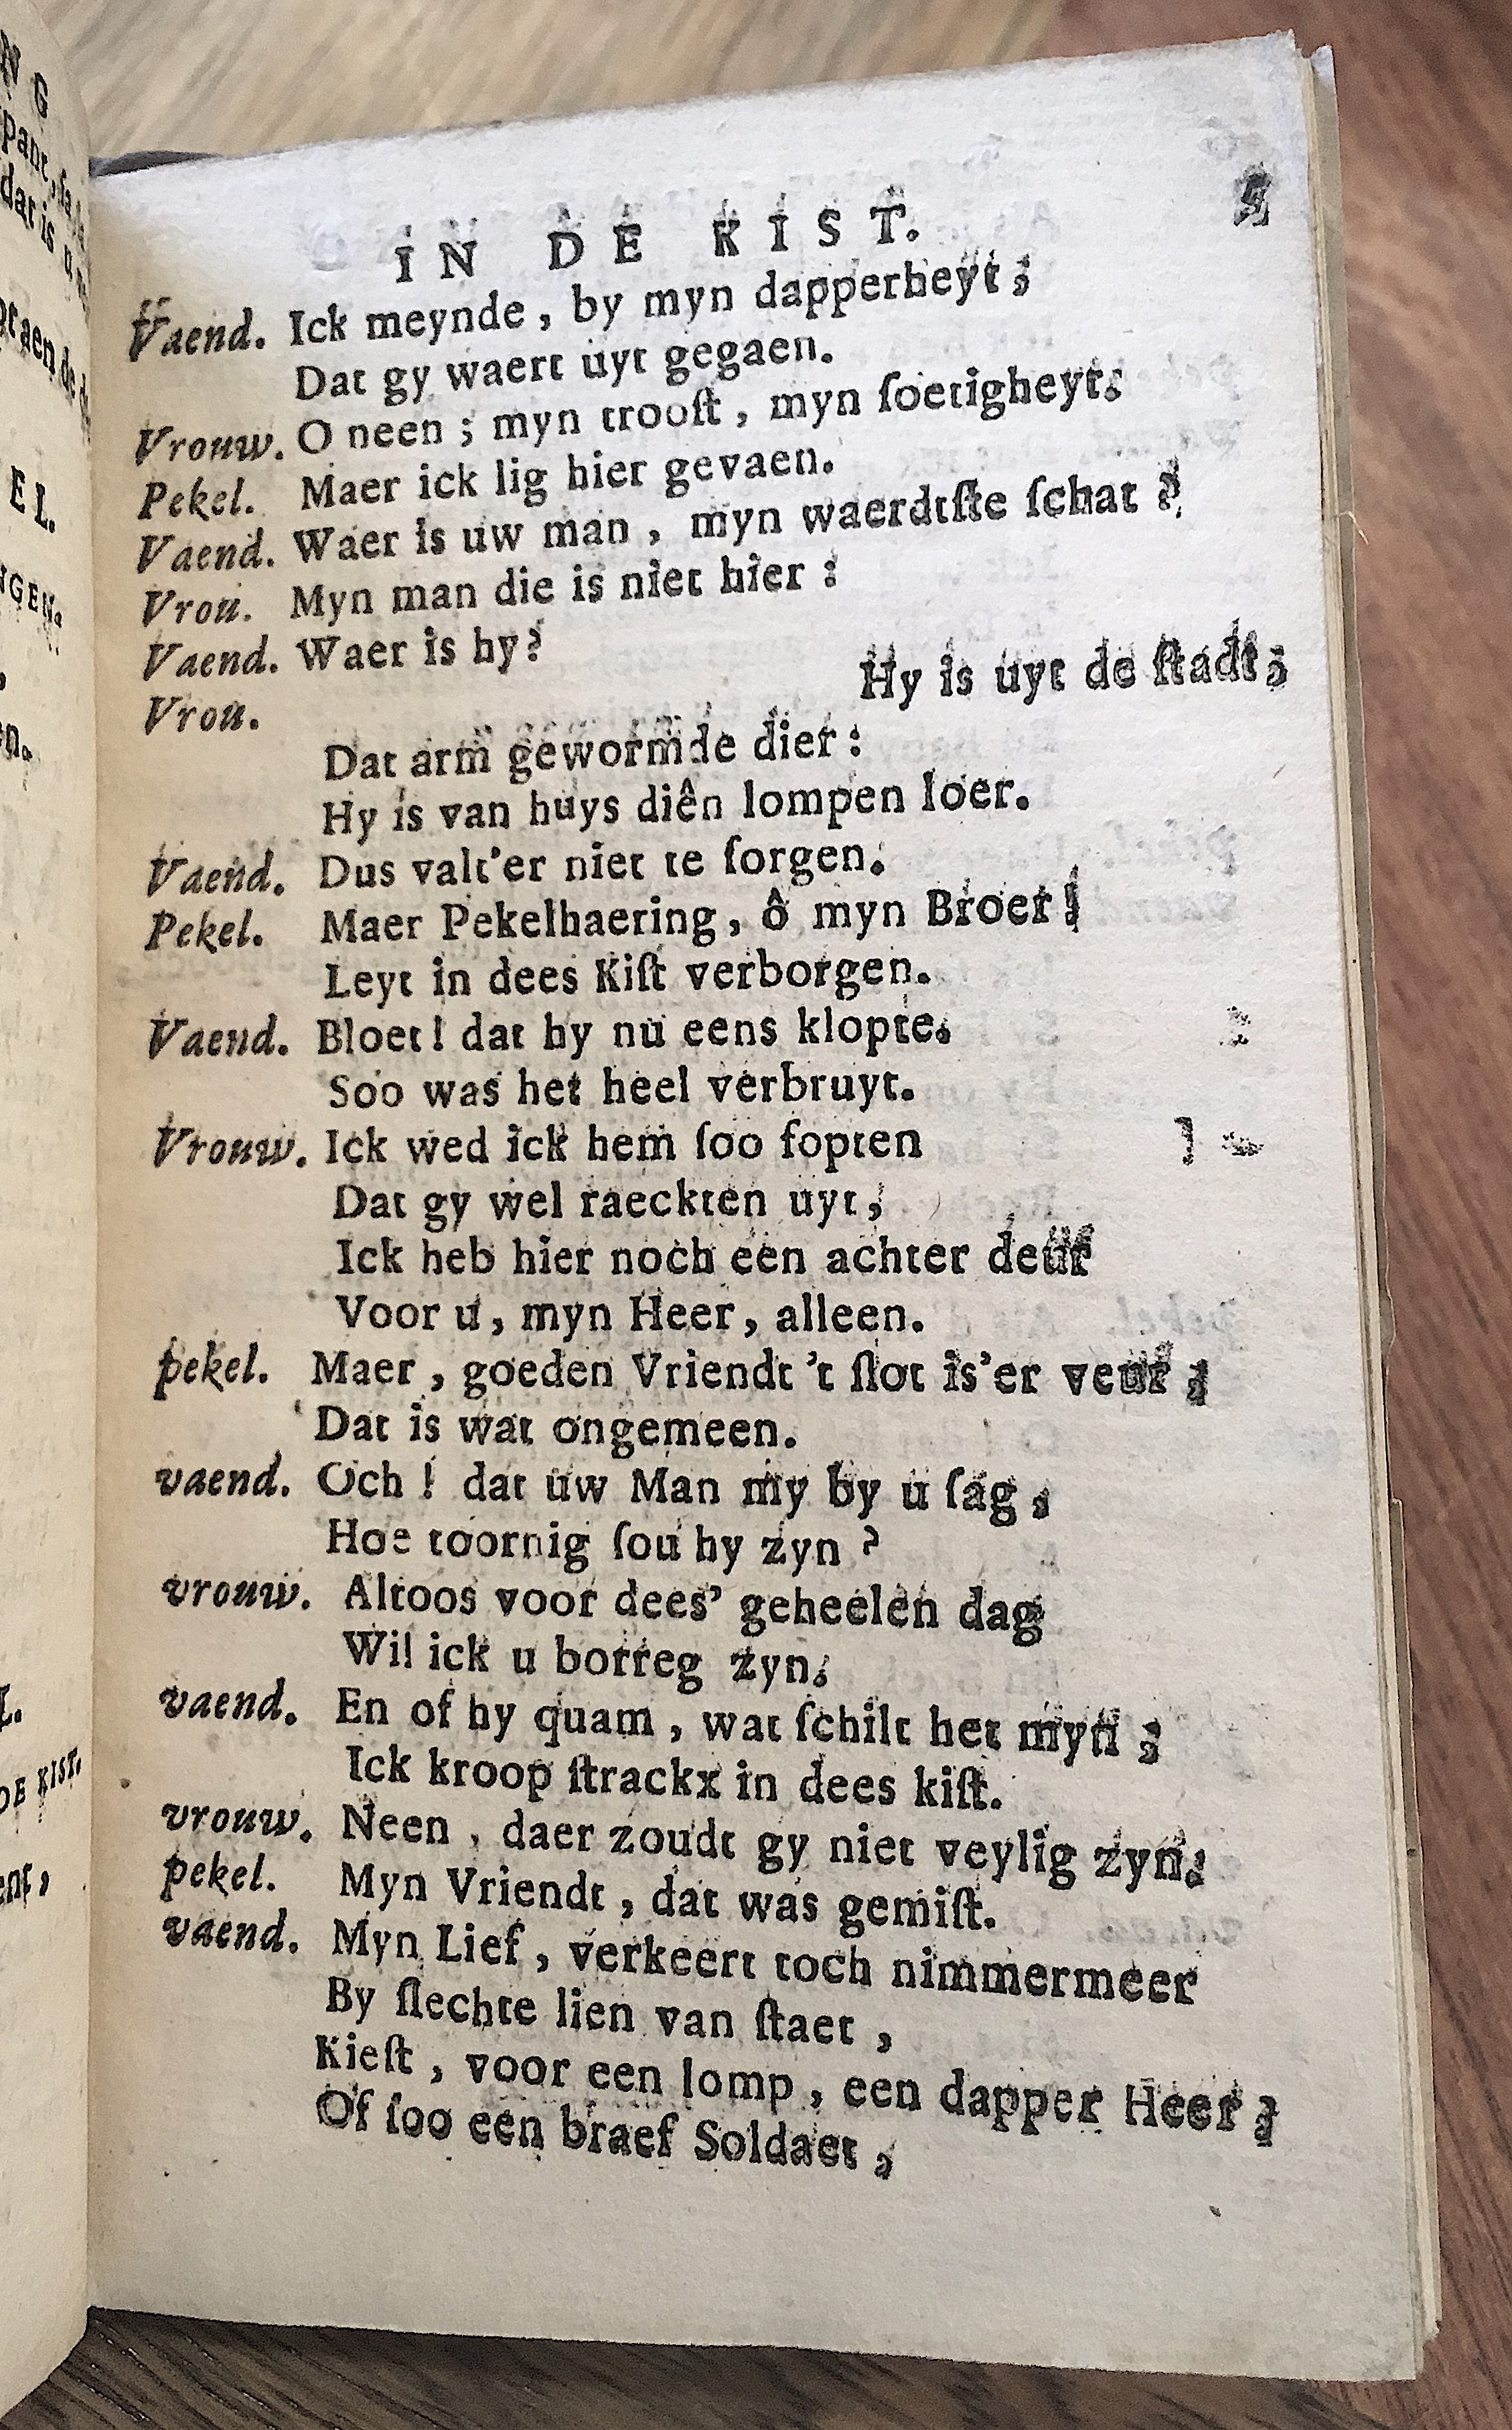 IN DE KIST. 5
Vaend. Ick meynde, by myn dapperheyt;
Dat gy waert uyt gegaen.
Vrouw. O neen; myn trooſt, myn ſoetigheyt;
Pekel. Maer ick lig hier gevaen.
Vaend. Waer is uw man, myn waerdtſte ſchat?
Vrou. Myn man die is niet hier:
Vaend. Waer is hy?
Vrou. Hy is uyt de ſtadt;
Dat arm gewormde dier:
Hy is van huys diên lompen loer.
Vaend. Dus valt'er niet te ſorgen.
Pekel. Maer Pekelhaering, ô myn Broer!
Leyt in dees Kiſt verborgen.
Vaend. Bloet! dat hy nu eens klopte.
Soo was het heel verbruyt.
Vrouw. Ick wed ick hem ſoo fopten
Dat gy wel raeckten uyt,
Ick heb hier noch een achter deur
Voor u, myn Heer, alleen.
pekel. Maer, goeden Vriendt 't ſlot is'er veur;
Dat is wat ongemeen.
vaend. Och! dat uw Man my by u ſag,
Hoe toornig ſou hy zyn?
vrouw. Altoos voor dees' geheelen dag
Wil ick u borreg zyn.
vaend. En of hy quam, wat ſchilt het myn;
Ick kroop ſtrackx in dees kiſt.
vrouw. Neen, daer zoudt gy niet veylig zyn.
pekel. Myn Vriendt, dat was gemiſt.
vaend. Myn Lief, verkeert toch nimmermeer
By ſlechte lien van ſtaet,
Kieſt, voor een lomp, een dapper Heer;
Of ſoo een braef Soldaet,